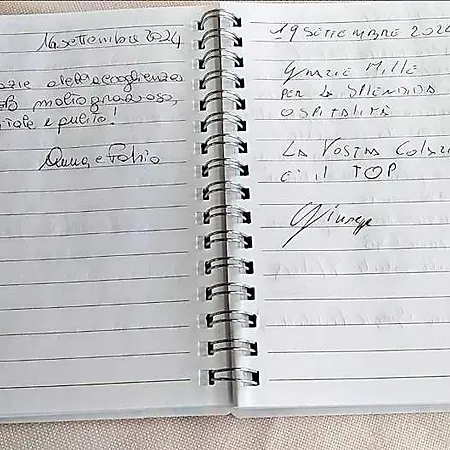 16 settembre 2024
dell'accoglienza
molto graziosa,
e pulito!
Anna e Fabio
19 SETTEMBRE 2024
GRAZIE MILLE
PER LA SPLENDIDA
OSPITALITÀ
LA VOSTRA COLAZI
È IL TOP
Giusep